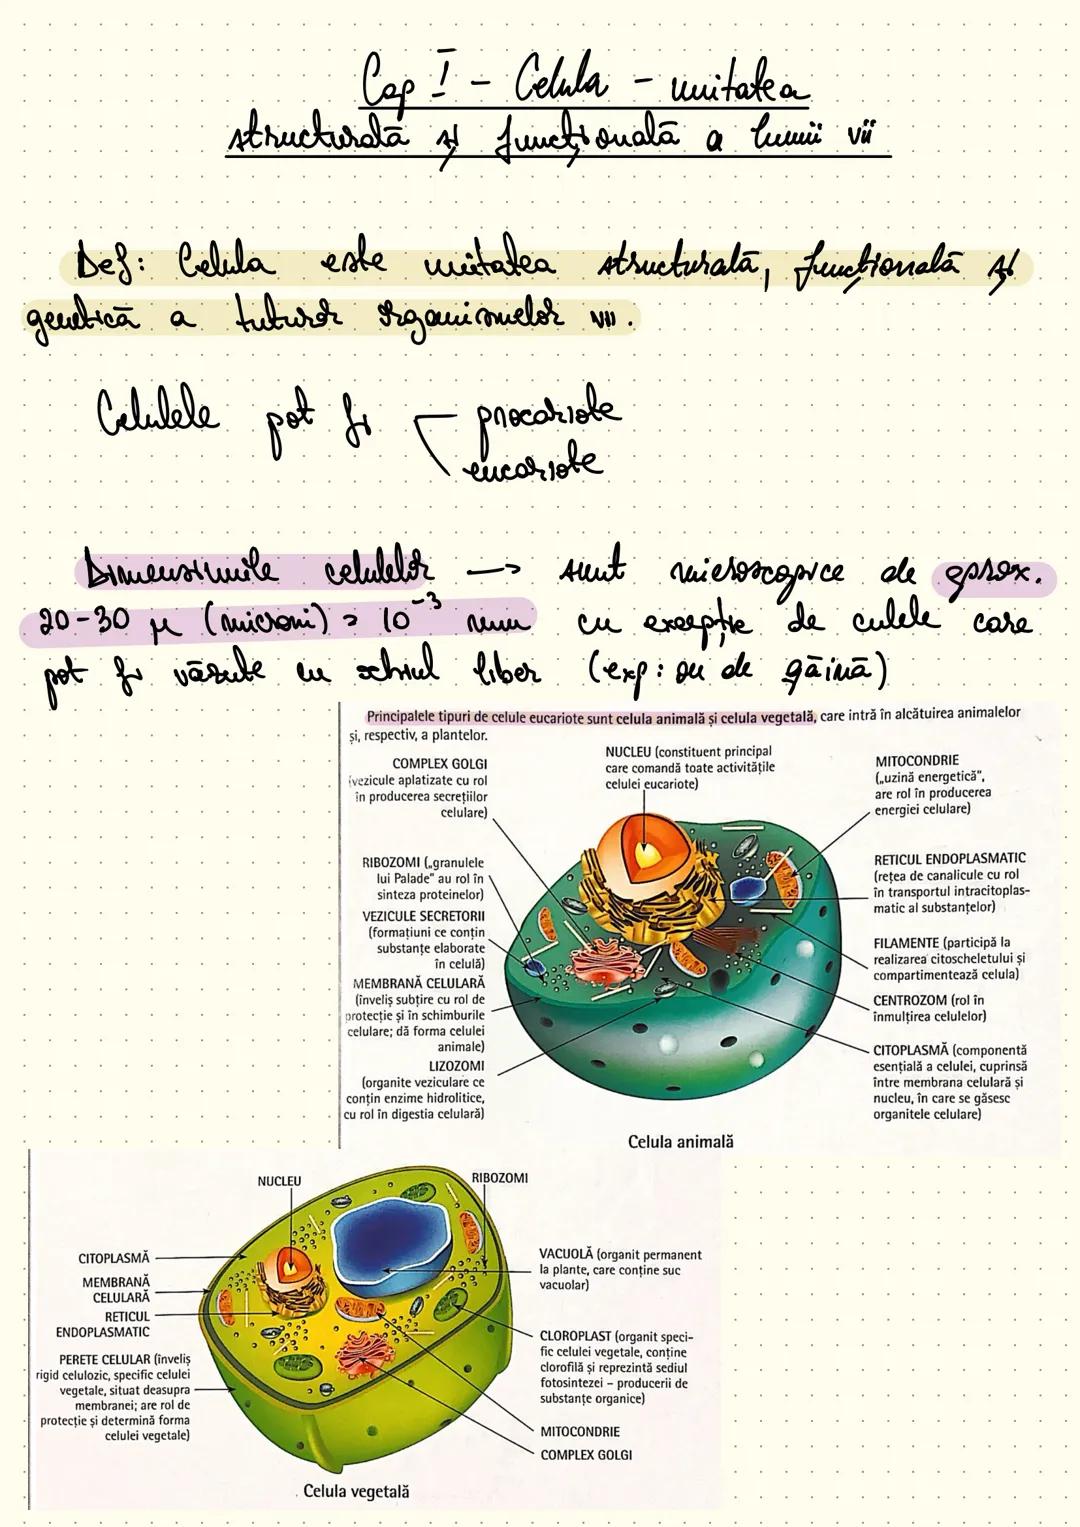 Cap I - Celula - unitatea
structurală și funcțională a lumii vii
Def: Celula este unitatea structurală, funcțională și
genetică a tuturor organismelor vii.
Celulele pot fi procariote
eucariote
Dimensiunile celulelor → sunt microscopice de aprox.
20-30 μ (microni) = 10⁻³ mm cu excepție de celule care
pot fi văzute cu ochiul liber (exp: ou de găină)
Principalele tipuri de celule eucariote sunt celula animală și celula vegetală, care intră în alcătuirea animalelor
și, respectiv, a plantelor.
COMPLEX GOLGI
(vezicule aplatizate cu rol
în producerea secrețiilor
celulare)
RIBOZOMI („granulele
lui Palade" au rol în
sinteza proteinelor)
VEZICULE SECRETORII
(formațiuni ce conțin
substanțe elaborate
în celulă)
MEMBRANĂ CELULARĂ
(înveliș subțire cu rol de
protecție și în schimburile
celulare; dă forma celulei
animale)
LIZOZOMI
(organite veziculare ce
conțin enzime hidrolitice,
cu rol în digestia celulară)
NUCLEU (constituent principal
care comandă toate activitățile
celulei eucariote)
MITOCONDRIE
(„uzină energetică",
are rol în producerea
energiei celulare)
RETICUL ENDOPLASMATIC
(rețea de canalicule cu rol
în transportul intracitoplas-
matic al substanțelor)
FILAMENTE (participă la
realizarea citoscheletului și
compartimentează celula)
CENTROZOM (rol în
înmulțirea celulelor)
CITOPLASMĂ (componentă
esențială a celulei, cuprinsă
între membrana celulară și
nucleu, în care se găsesc
organitele celulare)
Celula animală
NUCLEU
RIBOZOMI
CITOPLASMĂ
MEMBRANĂ
CELULARĂ
RETICUL
ENDOPLASMATIC
PERETE CELULAR (înveliș
rigid celulozic, specific celulei
vegetale, situat deasupra
membranei; are rol de
protecție și determină forma
celulei vegetale)
VACUOLĂ (organit permanent
la plante, care conține suc
vacuolar)
CLOROPLAST (organit speci-
fic celulei vegetale, conține
clorofilă și reprezintă sediul
fotosintezei – producerii de
substanțe organice)
MITOCONDRIE
COMPLEX GOLGI
Celula vegetală